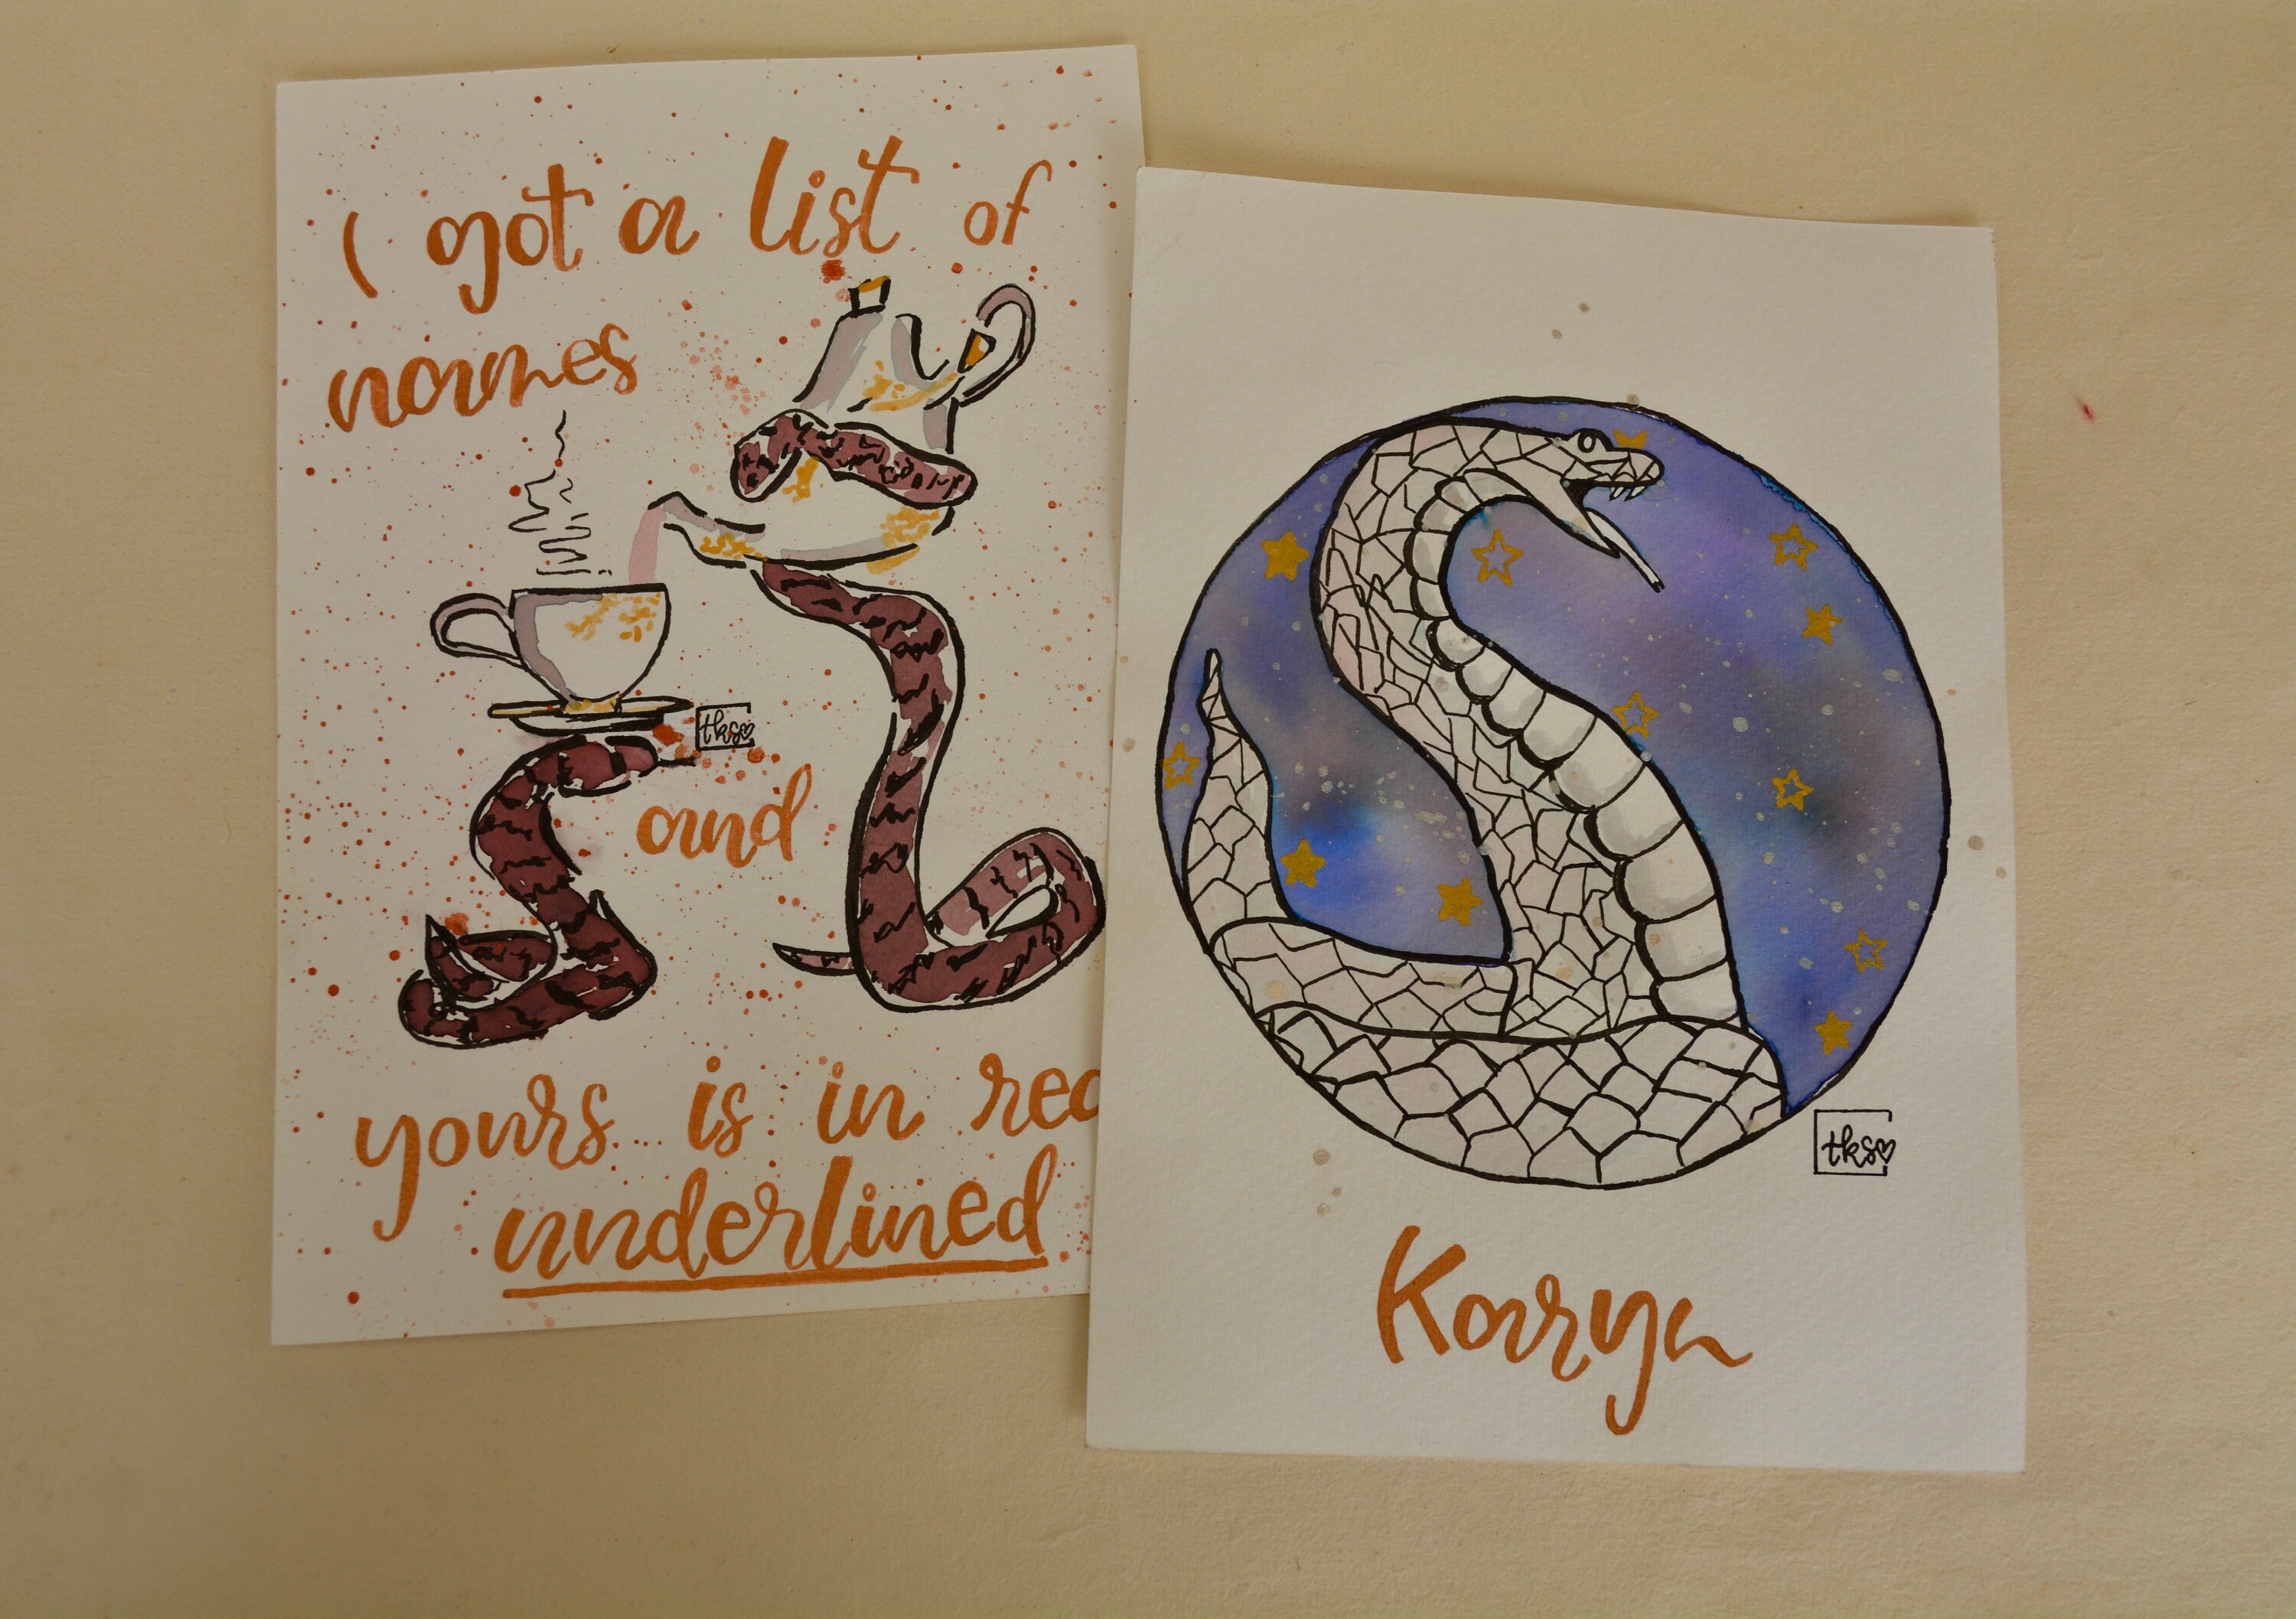 I got a list of
names
tks♡
and
yours is in red
underlined
tks♡
Karya